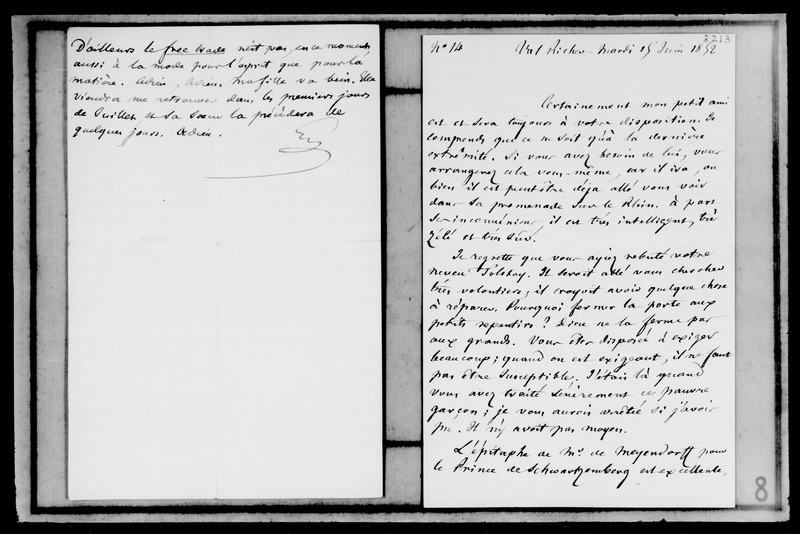 D'ailleurs le free trade n'est pas, en ce moment,
aussi à la mode pour l'esprit que pour la
matière. Adieu, Adieu. Ma fille va bien. Elle
viendra me retrouver dans les premiers jours
de Juillet et sa sœur la précédera de
quelques jours. Adieu.
3213
No 14 Val Richer - Mardi 15 Juin 1852
Certainement mon petit ami
est et sera toujours à votre disposition. Je
comprends que ce ne soit qu'à la dernière
extrémité. Si vous avez besoin de lui, vous
arrangerez cela vous-même, car il ira, ou
bien il est peut être déja allé vous voir
dans sa promenade sur le Rhin. à part
ses inconvéniens, il est très intelligent, très
zélé et très sûr.
Je regrette que vous ayiez rebuté votre
neveu Tolstoy. Il seroit allé vous chercher
très volontiers; il croyoit avoir quelque chose
à réparer. Pourquoi fermer la porte aux
petits repentirs? Dieu ne la ferme pas
aux grands. Vous êtes disposée à exiger
beaucoup; quand on est exigeant, il ne faut
pas être susceptible. J'étais là quand
vous avez traité sévèrement ce pauvre
garçon; je vous aurois arrêtée si j'avois
pu. Il n'y avoit pas moyen.
L'épitaphe de Mr. de Meyendorff pour
le Prince de Schwartzemberg est excellente,
8